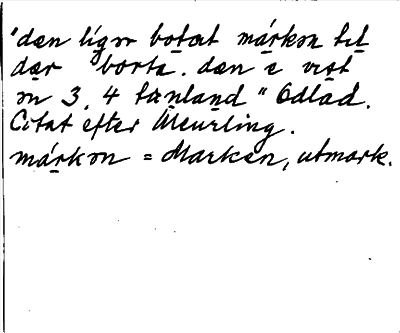 "dæn lígor botæt márkøn til
dær borta. dæn e vist
øn 3, 4 tænland" Odlad.
Citat efter Meurling.
márkøn = Marken, utmark.